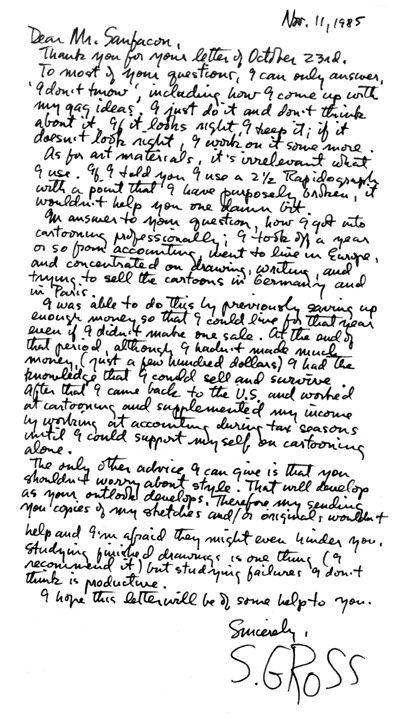 Nov. 11, 1985
Dear Mr. Sanfacon,
Thank you for your letter of October 23rd.
To most of your questions, I can only answer,
'I don't know', including how I come up with
my gag ideas. I just do it and don't think
about it. If it looks right, I keep it; if it
doesn't look right, I work on it some more.
As for art materials, it's irrelevant what
I use. If I told you I use a 2½ Rapidograph
with a point that I have purposely broken, it
wouldn't help you one damn bit.
In answer to your question, how I got into
cartooning professionally; I took off a year
or so from accounting, went to live in Europe,
and concentrated on drawing, writing, and
trying to sell the cartoons in Germany and
in Paris.
I was able to do this by previously saving up
enough money so that I could live for that year
even if I didn't make one sale. At the end of
that period, although I hadn't made much
money (just a few hundred dollars) I had the
knowledge that I could sell and survive.
After that I came back to the U.S. and worked
at cartooning and supplemented my income
by working at accounting during tax seasons
until I could support myself on cartooning
alone.
The only other advice I can give is that you
shouldn't worry about style. That will develop
as your outlook develops. Therefore my sending
you copies of my sketches and/or originals wouldn't
help and I'm afraid they might even hinder you.
Studying finished drawings is one thing (I
recommend it) but studying failures I don't
think is productive.
I hope this letter will be of some help to you.
Sincerely,
S. GROSS